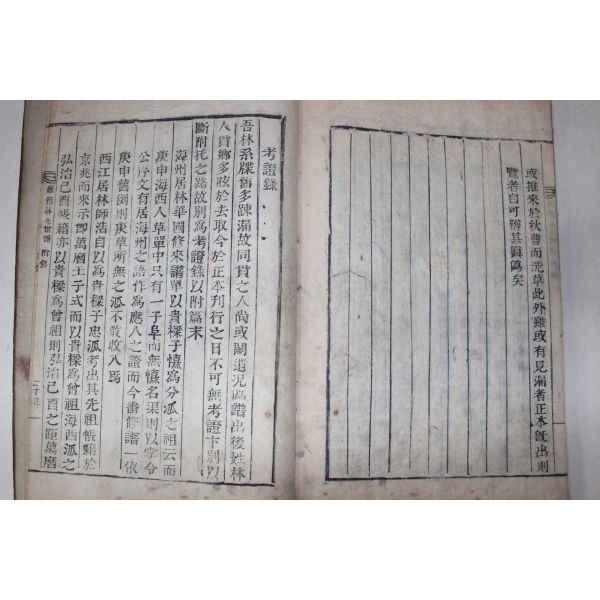 或推來於秋曹而洗草此外雖或有見漏者正本旣出則
覽者自可辨其眞僞矣
考證錄
吾林系牒舊多踈漏故同貫之人尙或闕遺况爲譜出後姓林
人貫鄕多眩於去取今於正本刊行之日不可無考證卞別以
斷附托之路故別爲考證錄以附篇末
海州居林華國修來譜單以貴樑子愼爲分派之祖云而
庚申海西人草單中只有一子阜而無愼名渠則以掌令
公序文有居海州之語作爲應入之證而今番修譜一依
庚申舊例則庚草所無之派不敢收入焉
西江居林師浩自以爲貴樑子忠派考出其先祖帳籍於
京兆而來示卽萬曆壬子式而以貴樑爲曾祖海西派之
弘治己酉帳籍亦以貴樑爲曾祖則弘治己酉之距萬曆
世譜 附錄
二十五